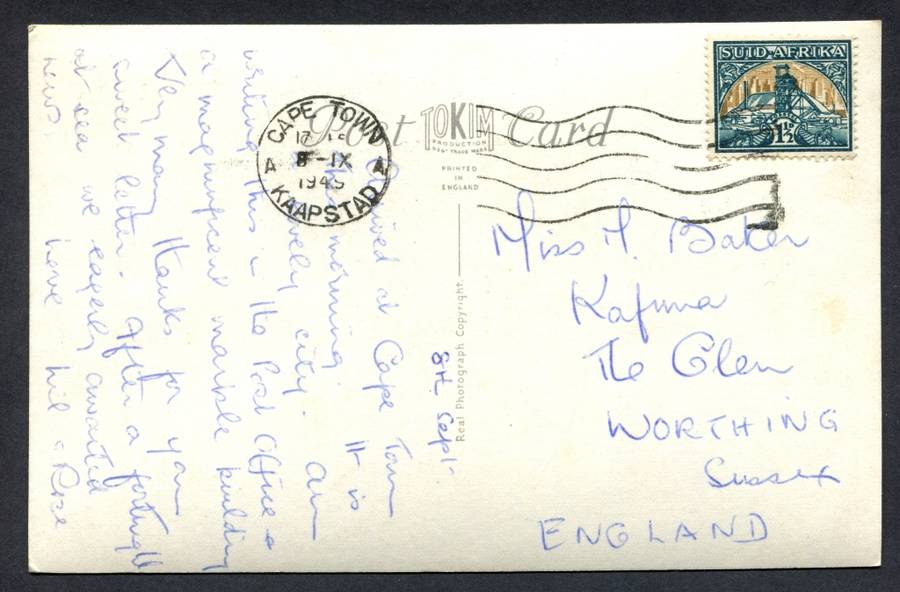 Post Card
TOKIM
PRODUCTION
REG. TRADE MARK
PRINTED
IN
ENGLAND
Real Photograph Copyright.
SUID-AFRIKA
1½
CAPE TOWN
A 8-IX A
1949
KAAPSTAD
8th Sept.
Arrived at Cape Town
this morning. It is
a lovely city. Am
writing this in the Post Office a
a magnificent marble building
Very many thanks for your
sweet letter. After a fortnight
at sea we eagerly awaited
news. Love Phil & Rose
Miss M. Baker
Kafuma
The Glen
WORTHING
Sussex
ENGLAND